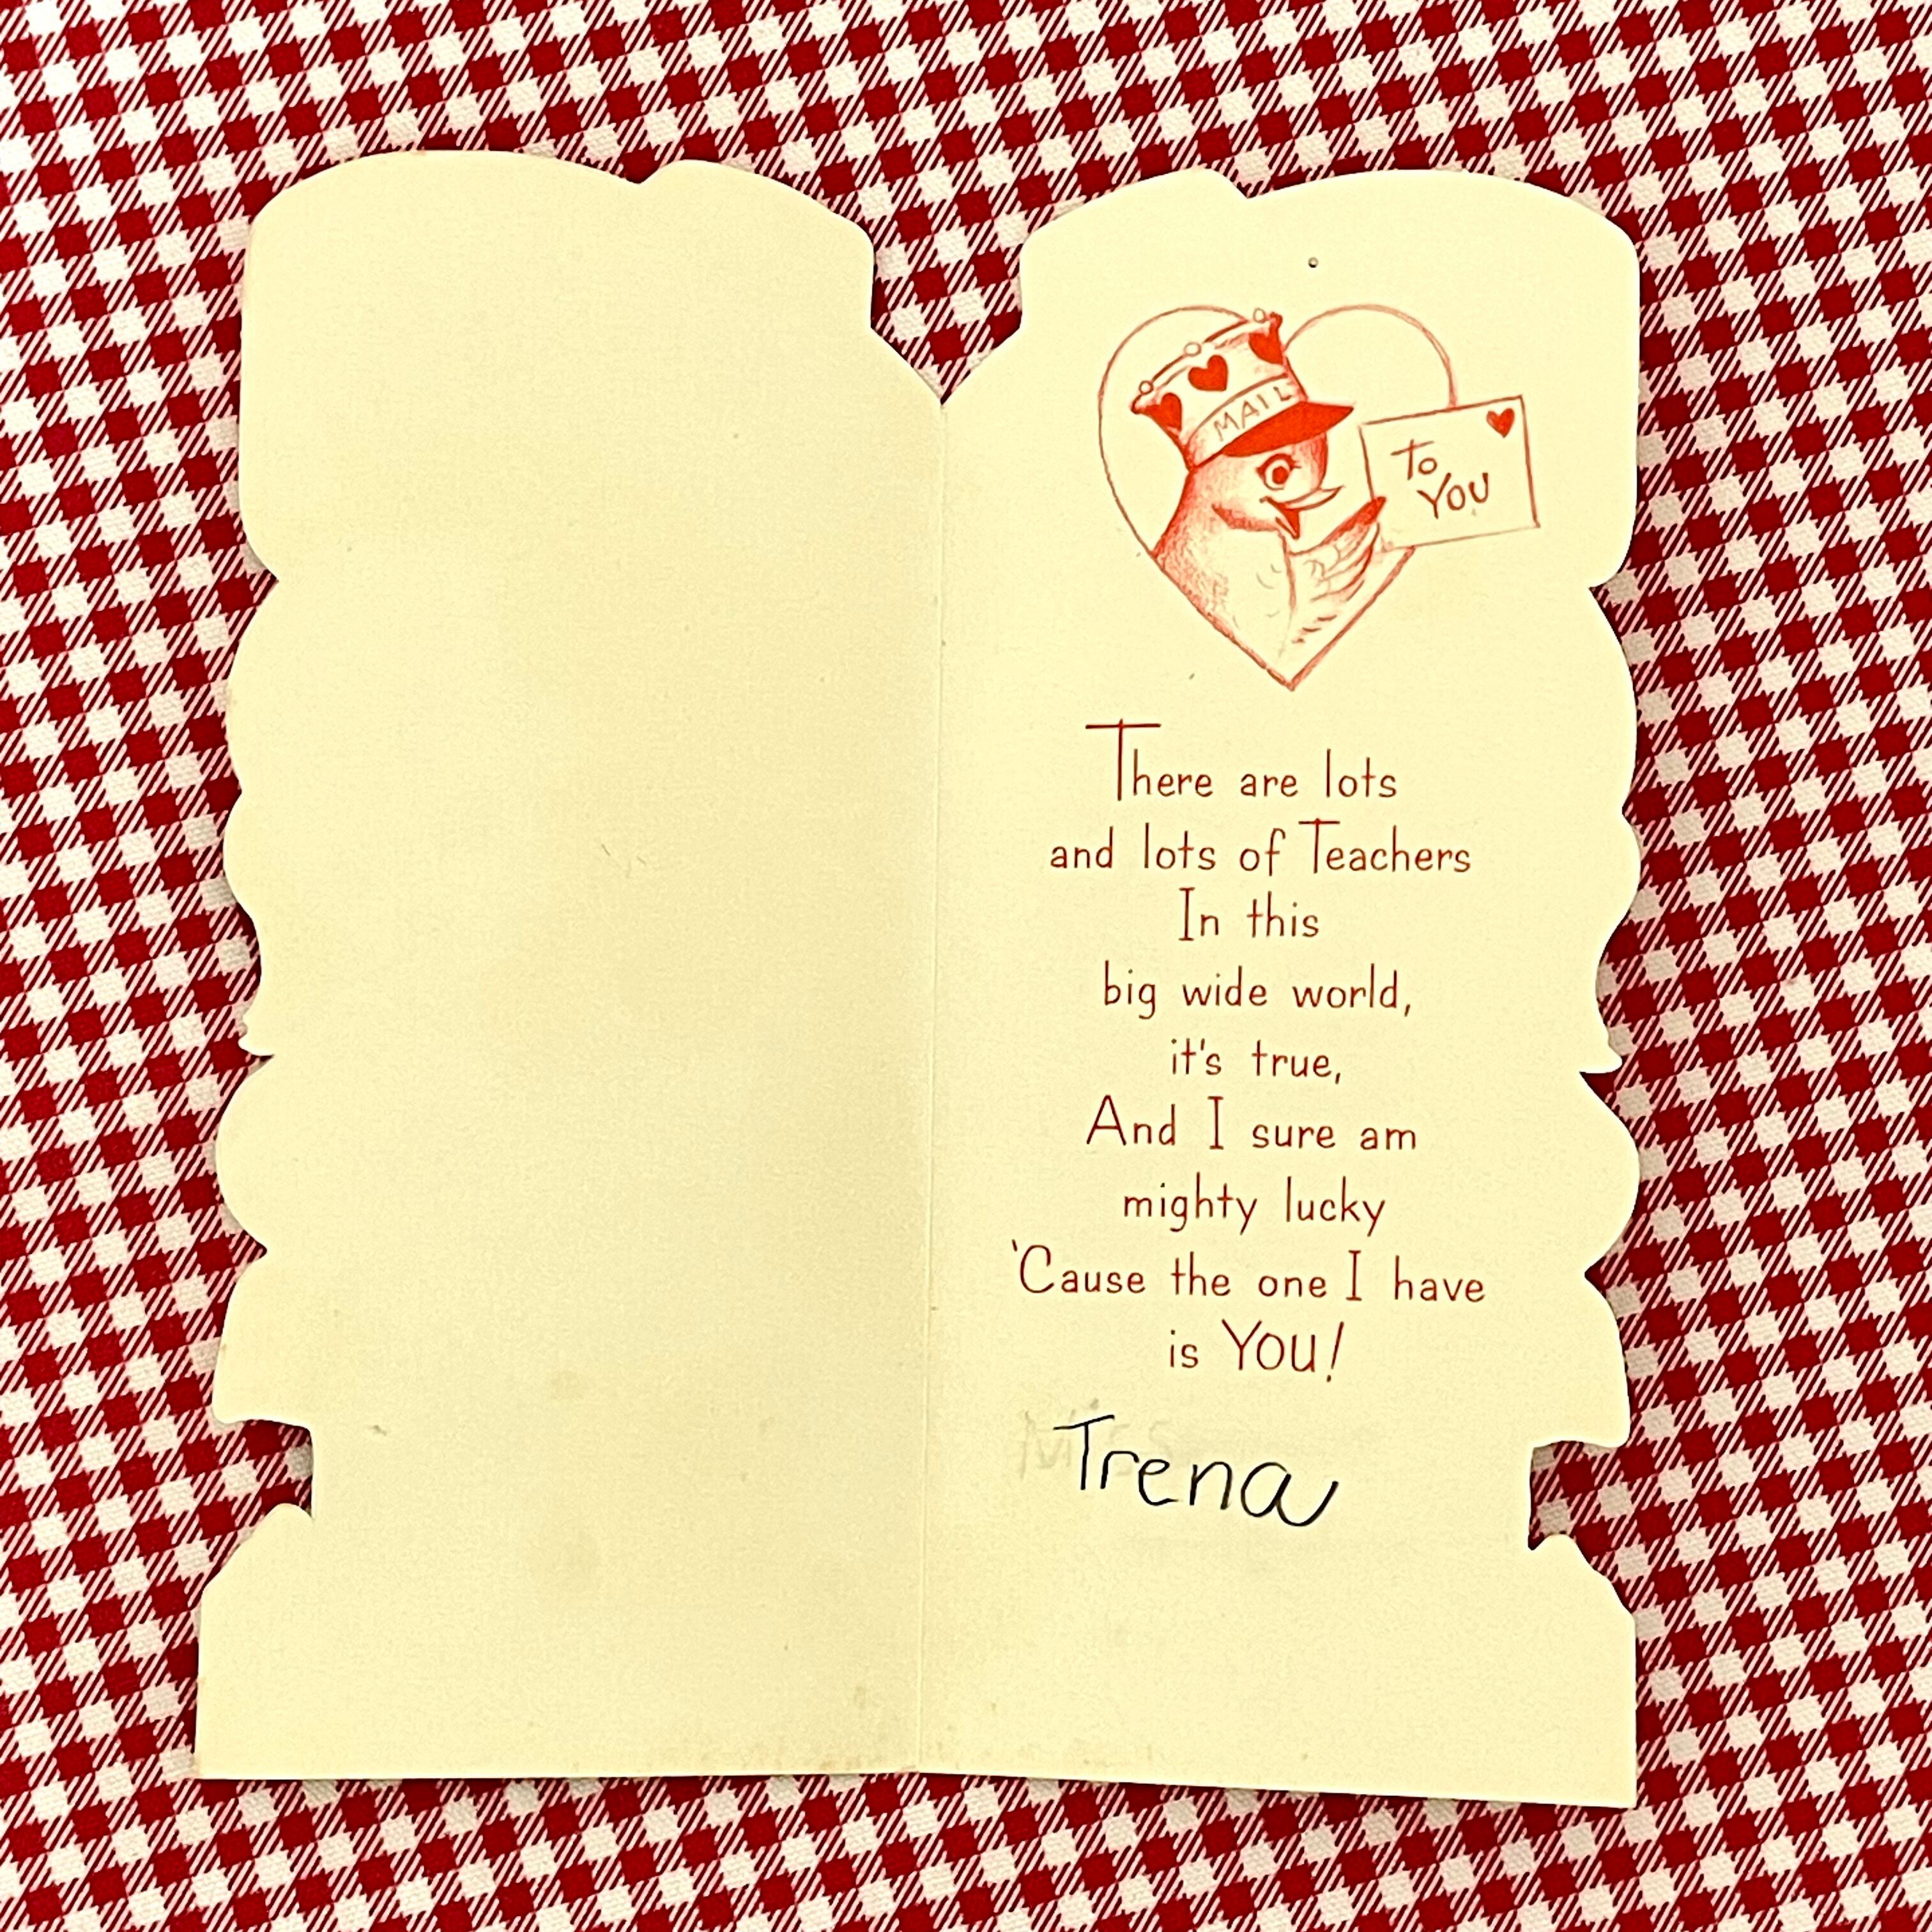 MAIL
To
YOU
There are lots
and lots of Teachers
In this
big wide world,
it's true,
And I sure am
mighty lucky
'Cause the one I have
is YOU!
Miss
Trena